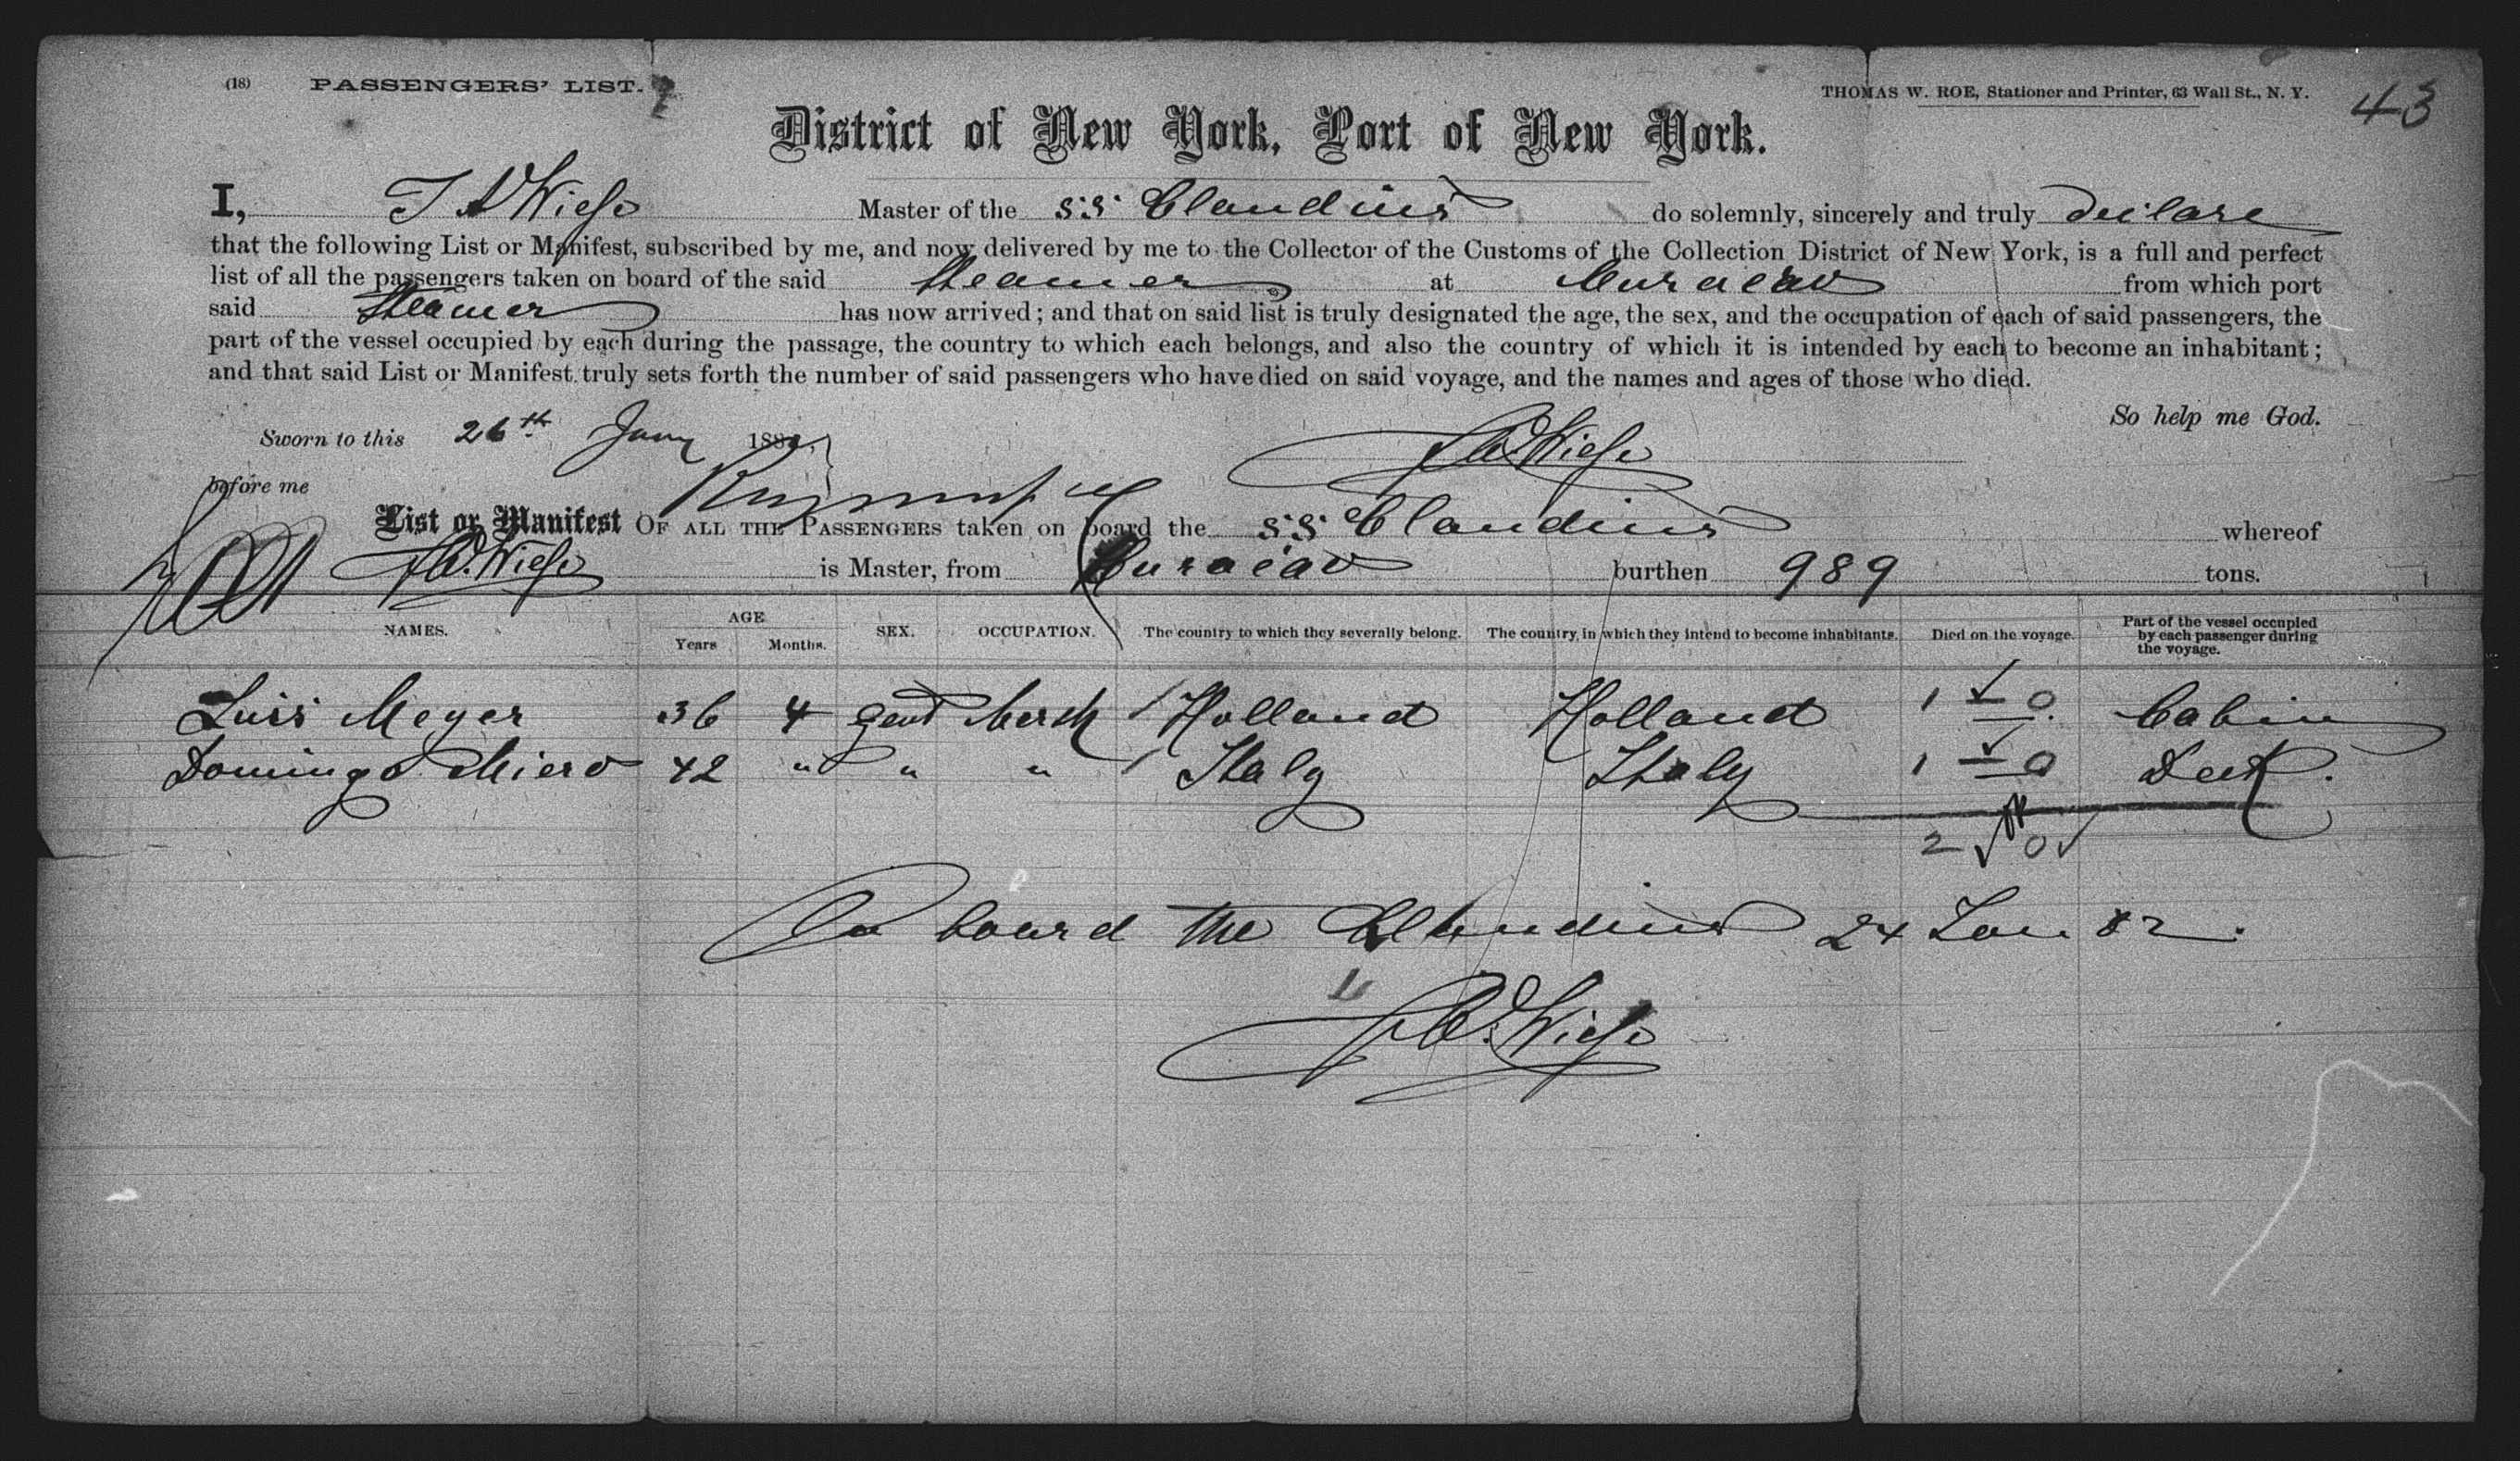 (18) PASSENGERS' LIST.
THOMAS W. ROE, Stationer and Printer, 63 Wall St., N. Y.
43
District of New York, Port of New York.
I, Wiese Master of the SS Claudius do solemnly, sincerely and truly declare
that the following List or Manifest, subscribed by me, and now delivered by me to the Collector of the Customs of the Collection District of New York, is a full and perfect
list of all the passengers taken on board of the said Steamer at Curacao from which port
said Steamer has now arrived; and that on said list is truly designated the age, the sex, and the occupation of each of said passengers, the
part of the vessel occupied by each during the passage, the country to which each belongs, and also the country of which it is intended by each to become an inhabitant;
and that said List or Manifest truly sets forth the number of said passengers who have died on said voyage, and the names and ages of those who died.
So help me God.
Sworn to this 26th Jany 1882 Wiese
before me
List or Manifest OF ALL THE PASSENGERS taken on board the SS Claudius whereof
Wiese is Master, from Curacao burthen 989 tons.
NAMES. AGE Years Months. SEX. OCCUPATION. The country to which they severally belong. The country in which they intend to become inhabitants. Died on the voyage. Part of the vessel occupied by each passenger during the voyage.
Luis Meyer 36 4 gent Merch Holland Holland 1 0 Cabin
Domingo Miero 42 " " " Italy Italy 1 0 Deck.
2 0
On board the Claudius 24 Jan 82.
Wiese